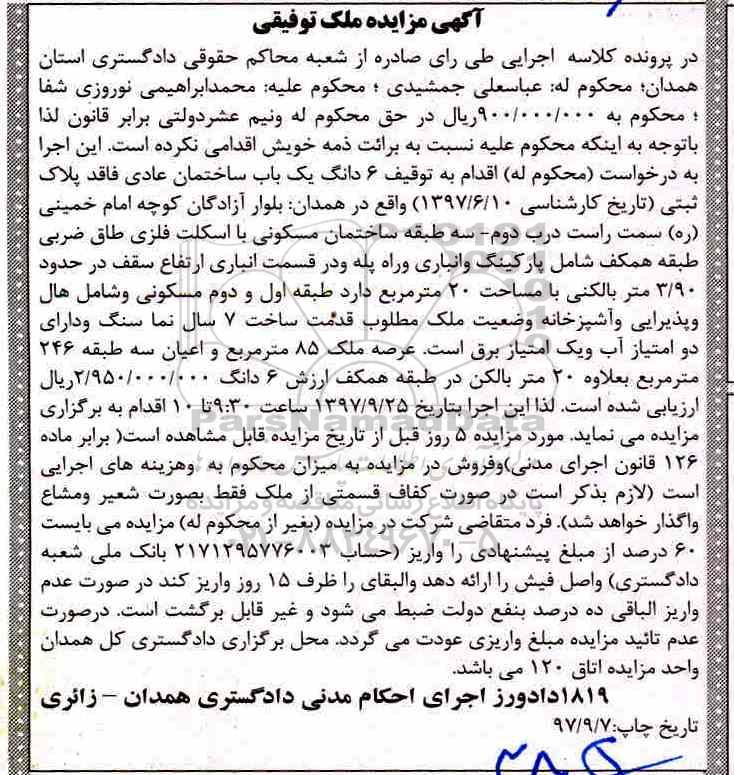 آگهی مزایده ملک توفیقی
در پرونده کلاسه اجرایی طی رای صادره از شعبه محاکم حقوقی دادگستری استان
همدان؛ محکوم له: عباسعلی جمشیدی ؛ محکوم علیه: محمدابراهیمی نوروزی شفا
؛ محکوم به ۹۰۰/۰۰۰/۰۰۰ریال در حق محکوم له ونیم عشردولتی برابر قانون لذا
باتوجه به اینکه محکوم علیه نسبت به برائت ذمه خویش اقدامی نکرده است. این اجرا
به درخواست (محکوم له) اقدام به توقیف ۶ دانگ یک باب ساختمان عادی فاقد پلاک
ثبتی (تاریخ کارشناسی ۱۳۹۷/۶/۱۰) واقع در همدان: بلوار آزادگان کوچه امام خمینی
(ره) سمت راست درب دوم- سه طبقه ساختمان مسکونی با اسکلت فلزی طاق ضربی
طبقه همکف شامل پارکینگ وانباری وراه پله ودر قسمت انباری ارتفاع سقف در حدود
۳/۹۰ متر بالکنی با مساحت ۲۰ مترمربع دارد طبقه اول و دوم مسکونی وشامل هال
وپذیرایی وآشپزخانه وضعیت ملک مطلوب قدمت ساخت ۷ سال نما سنگ ودارای
دو امتیاز آب ویک امتیاز برق است. عرصه ملک ۸۵ مترمربع و اعیان سه طبقه ۲۴۶
مترمربع بعلاوه ۲۰ متر بالکن در طبقه همکف ارزش ۶ دانگ ۲/۹۵۰/۰۰۰/۰۰۰ریال
ارزیابی شده است. لذا این اجرا بتاریخ ۱۳۹۷/۹/۲۵ ساعت ۹:۳۰تا ۱۰ اقدام به برگزاری
مزایده می نماید. مورد مزایده ۵ روز قبل از تاریخ مزایده قابل مشاهده است( برابر ماده
۱۲۶ قانون اجرای مدنی)وفروش در مزایده به میزان محکوم به وهزینه های اجرایی
است (لازم بذکر است در صورت کفاف قسمتی از ملک فقط بصورت شعیر ومشاع
واگذار خواهد شد). فرد متقاضی شرکت در مزایده (بغیر از محکوم له) مزایده می بایست
۶۰ درصد از مبلغ پیشنهادی را واریز (حساب ۲۱۷۱۲۹۵۷۷۶۰۰۳ بانک ملی شعبه
دادگستری) واصل فیش را ارائه دهد والبقای را ظرف ۱۵ روز واریز کند در صورت عدم
واریز الباقی ده درصد بنفع دولت ضبط می شود و غیر قابل برگشت است. درصورت
عدم تائید مزایده مبلغ واریزی عودت می گردد. محل برگزاری دادگستری کل همدان
واحد مزایده اتاق ۱۲۰ می باشد.
۱۸۱۹دادورز اجرای احکام مدنی دادگستری همدان – زائری
تاریخ چاپ:۹۷/۹/۷
ParsNamadData
پایگاه اطلاع رسانی مناقصه و مزایده
۰۲۱-۸۸۳۴۹۶۷۰-۵